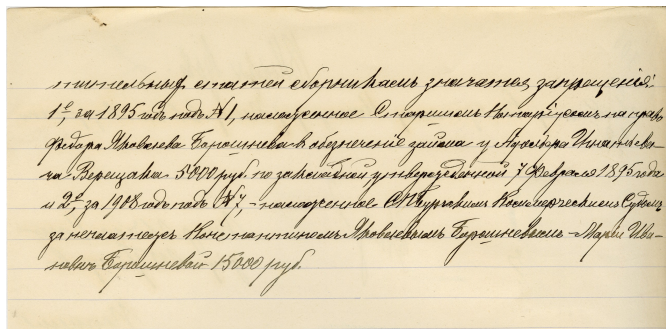 тительных статей сборникам значатся запрещения:
1е, за 1895 годъ подъ №1, наложенное Старшимъ Нотаріусомъ на
Федора Яковлева Борошнева въ обезпеченіе займа у
ча Верещака 5000 руб. по закладной утвержденной 7 Февраля 1895 года
и 2е, за 1908 годъ подъ №7, - наложенное СПбургскимъ Коммерческимъ Судомъ
за неплатежъ Константиномъ Яковлевымъ Борошневымъ - Маріи Ива-
новнѣ Борошневой 15000 руб.